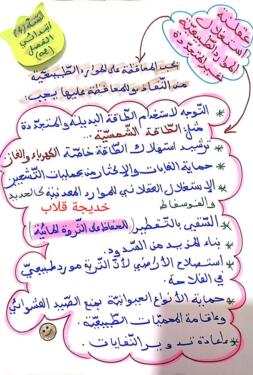 عقلنة
استغلال
الموارد الطبيعية
غير المتجددة
سنة (4)
ابتدائي
الفصل
(03)
يجب المحافظة على الموارد الطبيعية
من النفاذ وللمحافظة عليها يجب:
* التوجه لاستخدام الطاقة البديلة والمتجددة
مثل: الطاقة الشمسية...
* ترشيد استهلاك الطاقة خاصة الكهرباء والغاز
* حماية الغابات والإكثار من عمليات التشجير
* الاستغلال العقلاني للموارد المعدنية كالحديد
والفوسفاط
خديجة قلاب
* السقي بالتقطير للحفاظ على الثروة المائية
* بناء المزيد من السدود.
* استصلاح الأراضي لأن التربة مورد طبيعي
في الفلاحة.
* حماية الأنواع الحيوانية بمنع الصيد العشوائي
وإقامة المحميات الطبيعية.
* إعادة تدوير النفايات.